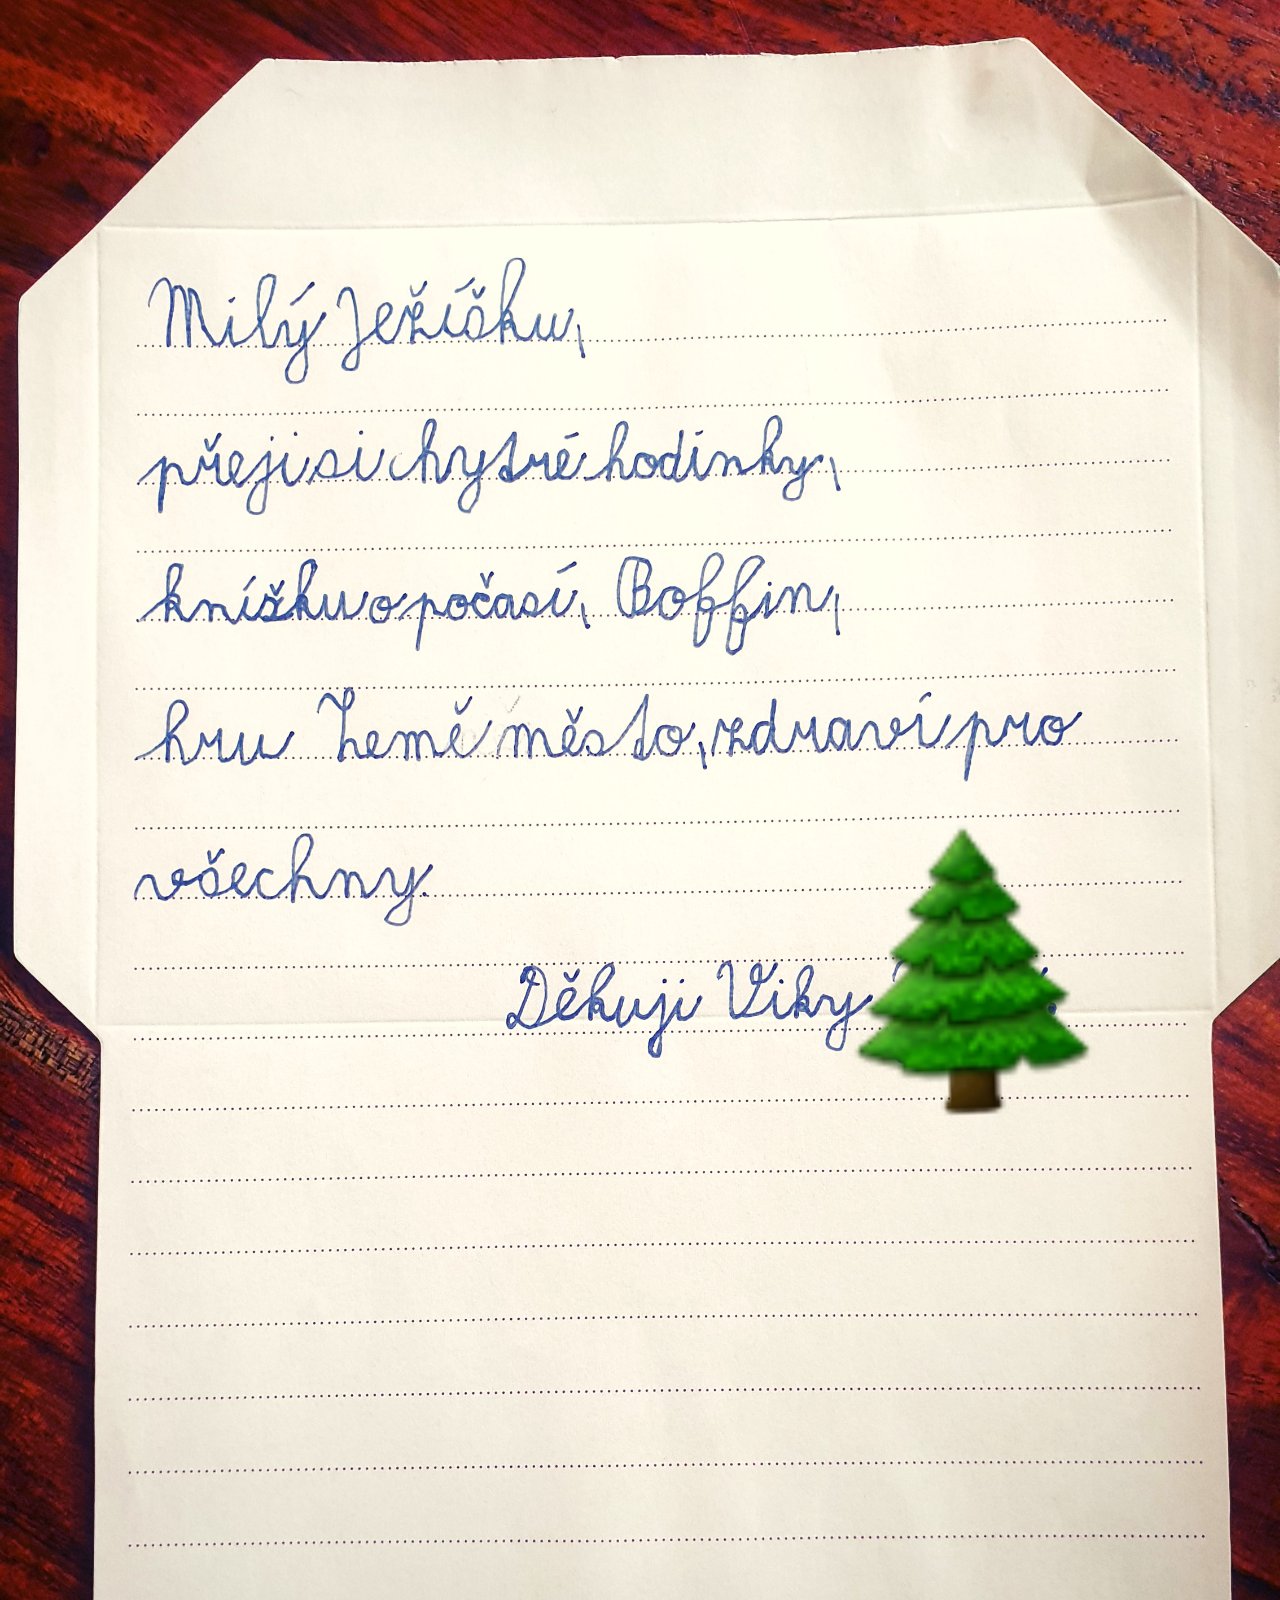 Milý Ježíšku,
přeji si chytré hodinky,
knížku o počasí, Boffin,
hru Země město, zdraví pro
všechny.
Děkuji Viky